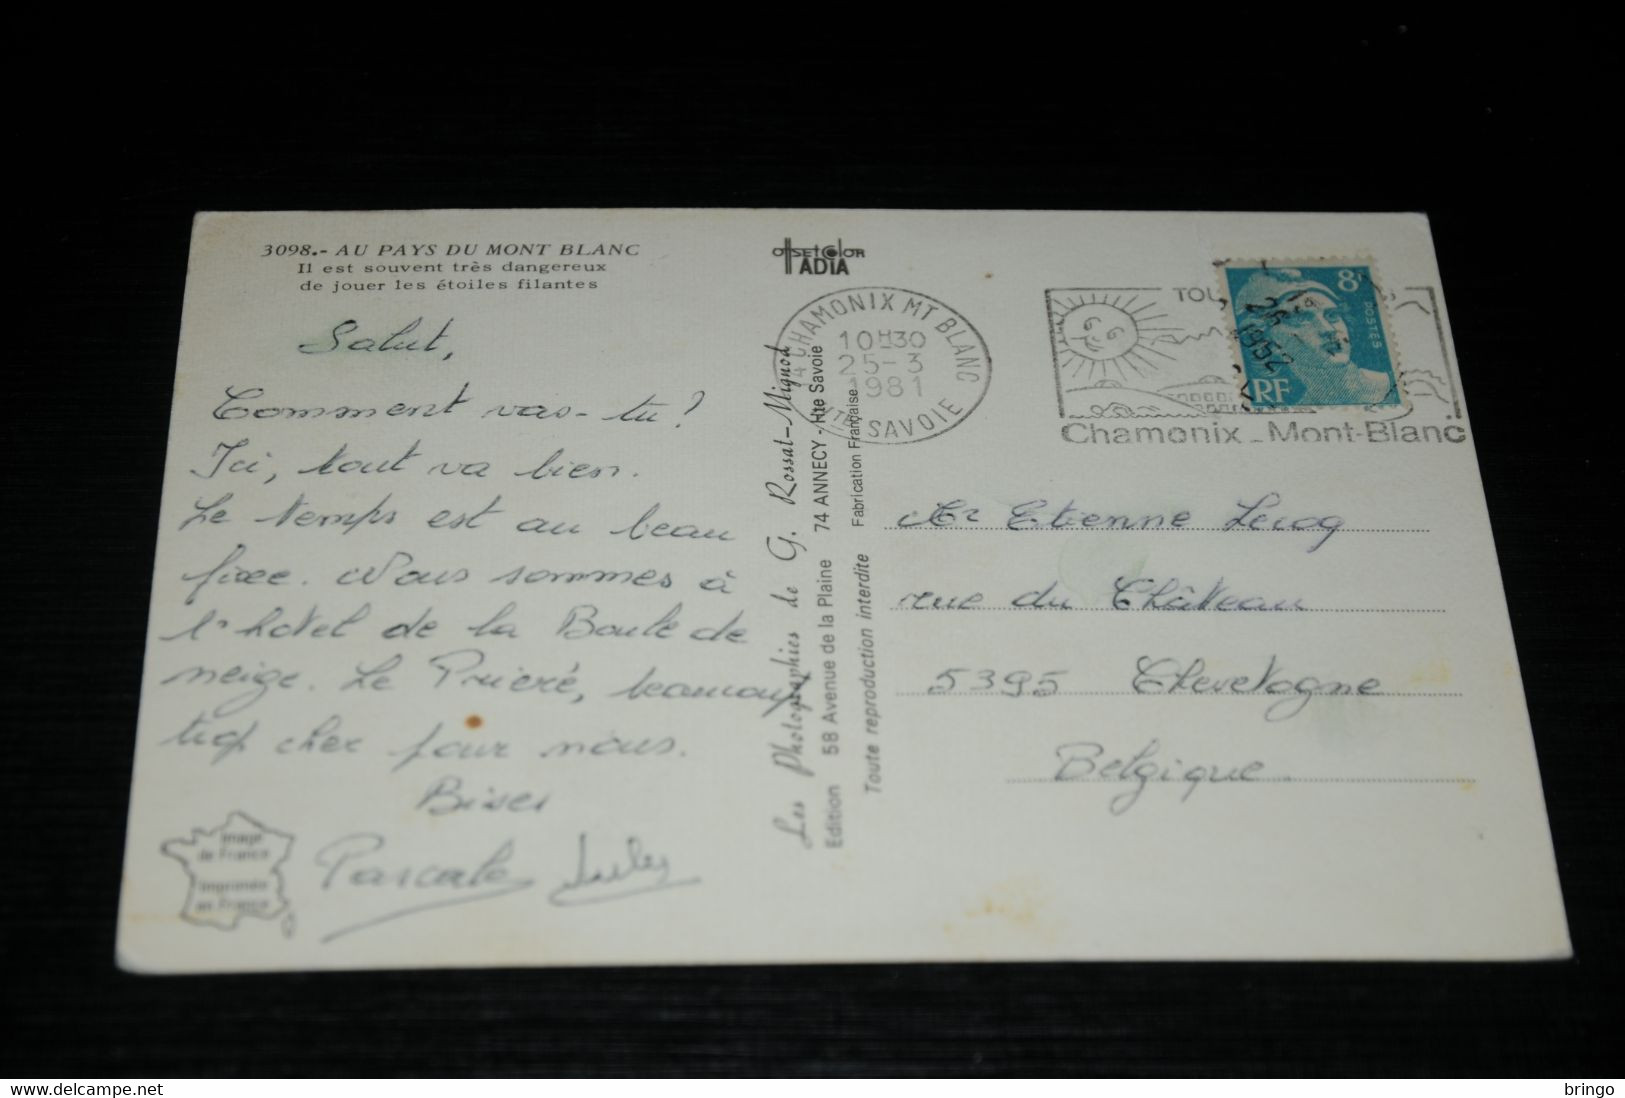 3098.- AU PAYS DU MONT BLANC
Il est souvent très dangereux
de jouer les étoiles filantes
Salut,
Comment vas-tu?
Ici, tout va bien.
Le temps est au beau
fixe. Nous sommes à
l'hôtel de la Boule de
neige. Le Prieré, beaucoup
trop cher pour nous.
Bises
Pascale
Image
de France
Imprimée
en France
OffsetColor
IADIA
Les Photographies de G. Rossat-Mignod
Edition 58 Avenue de la Plaine 74 ANNECY - Hte Savoie
Toute reproduction interdite Fabrication Française
74 CHAMONIX MT BLANC
10H30
25-3
1981
HTE SAVOIE
TOU
Chamonix_Mont-Blanc
8F
POSTES
RF
Mr Etienne Lecoq
rue du Château
5395 Chevetogne
Belgique
www.delcampe.net
bringo